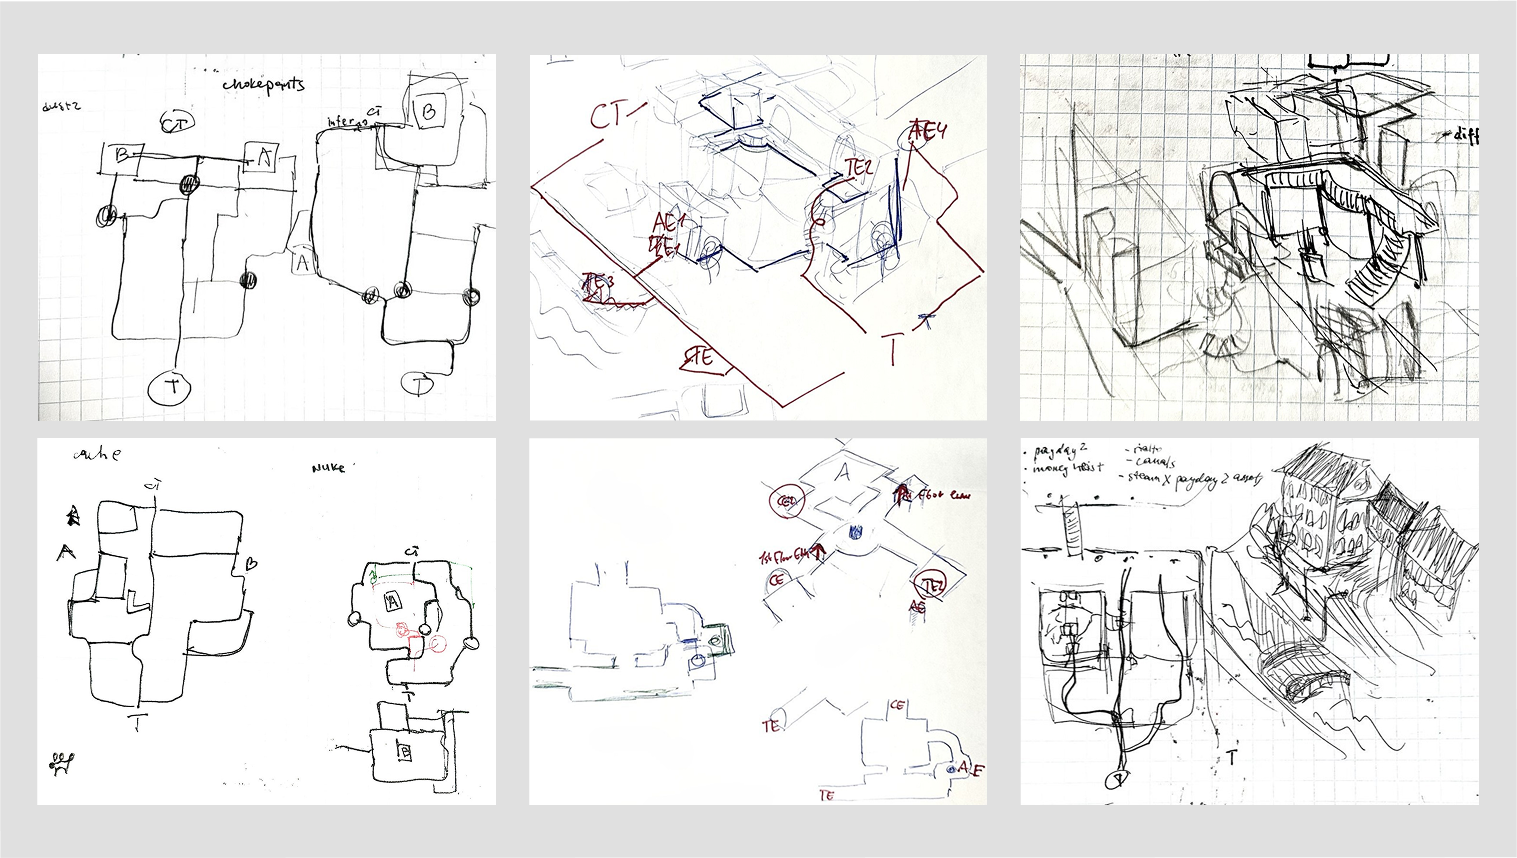 chokepoints
dust2
CT
B
A
T
inferno
CT
B
A
T
CT
AE4
TE2
AE1
TE3
TE
T
diff
cache
CT
A
B
T
Nuke
CT
A
T
B
A
1st Floor
CE
TE2
AE
TE
CE
AE
TE
• payday 2
• money heist
- rialto
- canals
- steam X payday 2 asset
T